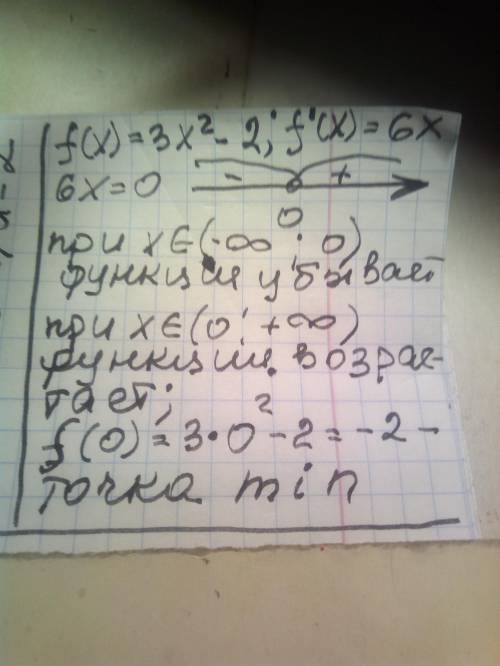 f(x) = 3x² - 2; f'(x) = 6x
6x = 0 - +
0
при x∈(-∞; 0)
функция убывает
при x∈(0; +∞)
функция возрас-
тает;
f(0) = 3·0² - 2 = -2 -
точка min